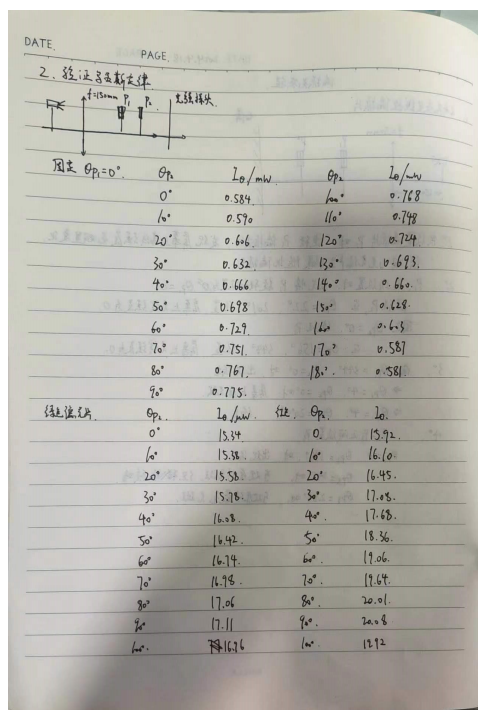 DATE.
PAGE.
2. 验证马吕斯定律
f=150mm P₁ P₂ 光强探头
固定 θp₁=0°. θp₂ Iθ/mW. θp₂ Iθ/mW
0° 0.584. 100° 0.768
10° 0.590 110° 0.748
20° 0.606 120° 0.724
30° 0.632 130° 0.693.
40° 0.666 140° 0.660.
50° 0.698 150° 0.628.
60° 0.729. 160° 0.603
70° 0.751. 170° 0.587
80° 0.767. 180°. 0.581.
90° 0.775.
绿色偏光片 θp₂. Iθ/μW. 红色 θp₂. Iθ.
0° 15.34 0. 15.92.
10° 15.38. 10° 16.10.
20° 15.58 20° 16.45.
30° 15.78. 30° 17.08.
40° 16.08. 40° 17.68.
50° 16.42 50° 18.36.
60° 16.74. 60°. 19.06.
70° 16.98. 70°. 19.64.
80° 17.06 80°. 20.01.
90° 17.11 90°. 20.08
100°. 16.76 100° 19.92